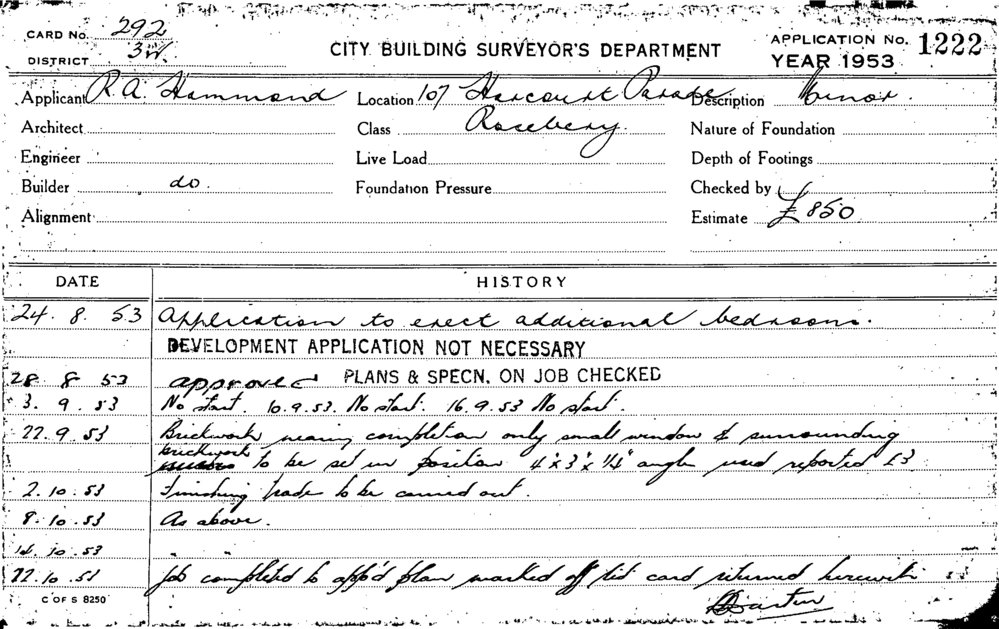 CARD No. 292
DISTRICT 3W.
CITY BUILDING SURVEYOR'S DEPARTMENT
APPLICATION No. 1222
YEAR 1953
Applicant R. A. Hammond Location 107 Harcourt Parade Description Minor.
Architect Class Rosebery. Nature of Foundation
Engineer Live Load Depth of Footings
Builder do. Foundation Pressure Checked by
Alignment Estimate £850
DATE HISTORY
24. 8. 53 Application to erect additional bedroom.
DEVELOPMENT APPLICATION NOT NECESSARY
28 8 53 approved PLANS & SPECN. ON JOB CHECKED
3. 9. 53 No start. 10.9.53. No start. 16.9.53 No start.
22.9.53 Brickwork nearing completion only small window & surrounding
brickwork to be set in position 4"x3"x1/4" angle used reported
2.10.53 Finishing trade to be carried out.
8.10.53 As above.
10.53 " "
22.10.53 Job completed to app'd plan marked off card returned herewith
C OF S 8250